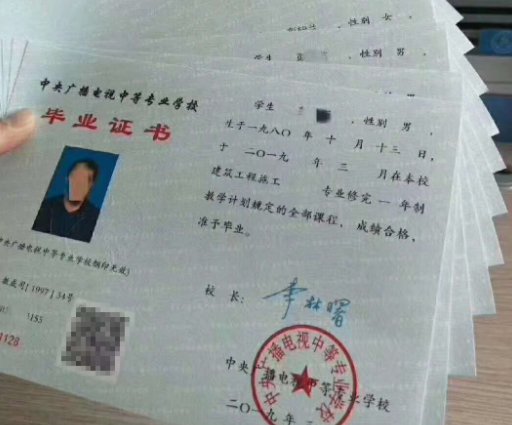 ，性别 女，
学生
，性别 男，
中央广播电视中等专业学校
毕业证书
学生
，性别 男，
生于一九八〇 年 十 月 十三 日，
于 二〇一九 年 三 月在本校
建筑工程施工 专业修完 一 年制
教学计划规定的全部课程，成绩合格，
准予毕业。
中央广播电视中等专业学校钢印无效)
[1997]34号
校 长：
李林曙
1128
中央广播电视中等专业学校
中央广播电视中等专业学校
二〇一九 年